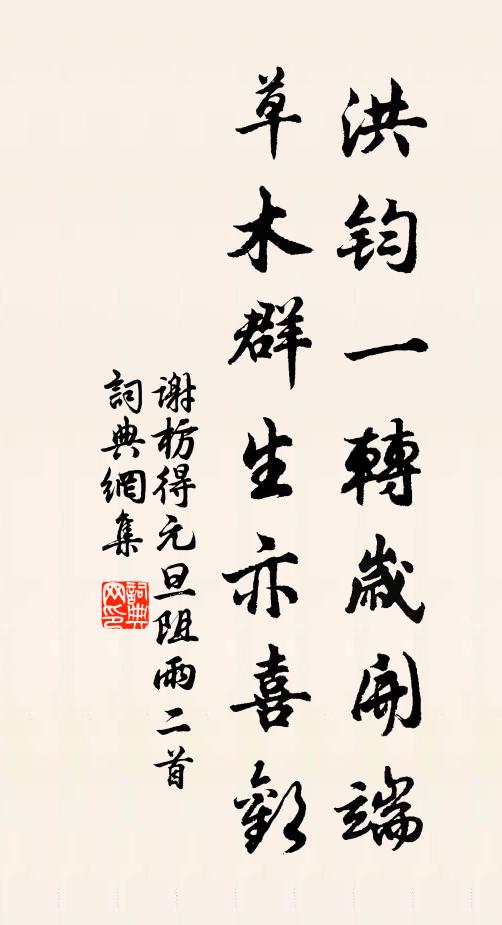 洪鈞一轉歲開端
草木群生亦喜歡
谢枋得元旦阻雨二首
詞典網集
詞典网印